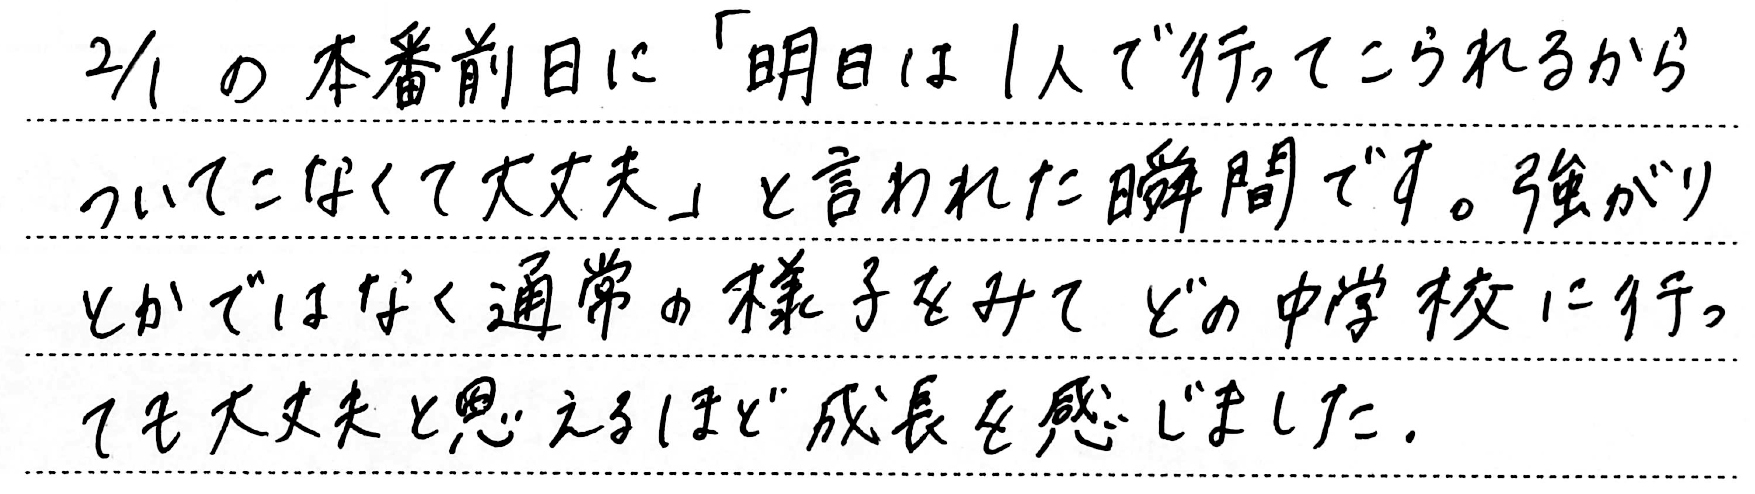 2/1 の本番前日に「明日は1人で行ってこられるから
ついてこなくて大丈夫」と言われた瞬間です。強がり
とかではなく通常の様子をみてどの中学校に行っ
ても大丈夫と思えるほど成長を感じました.